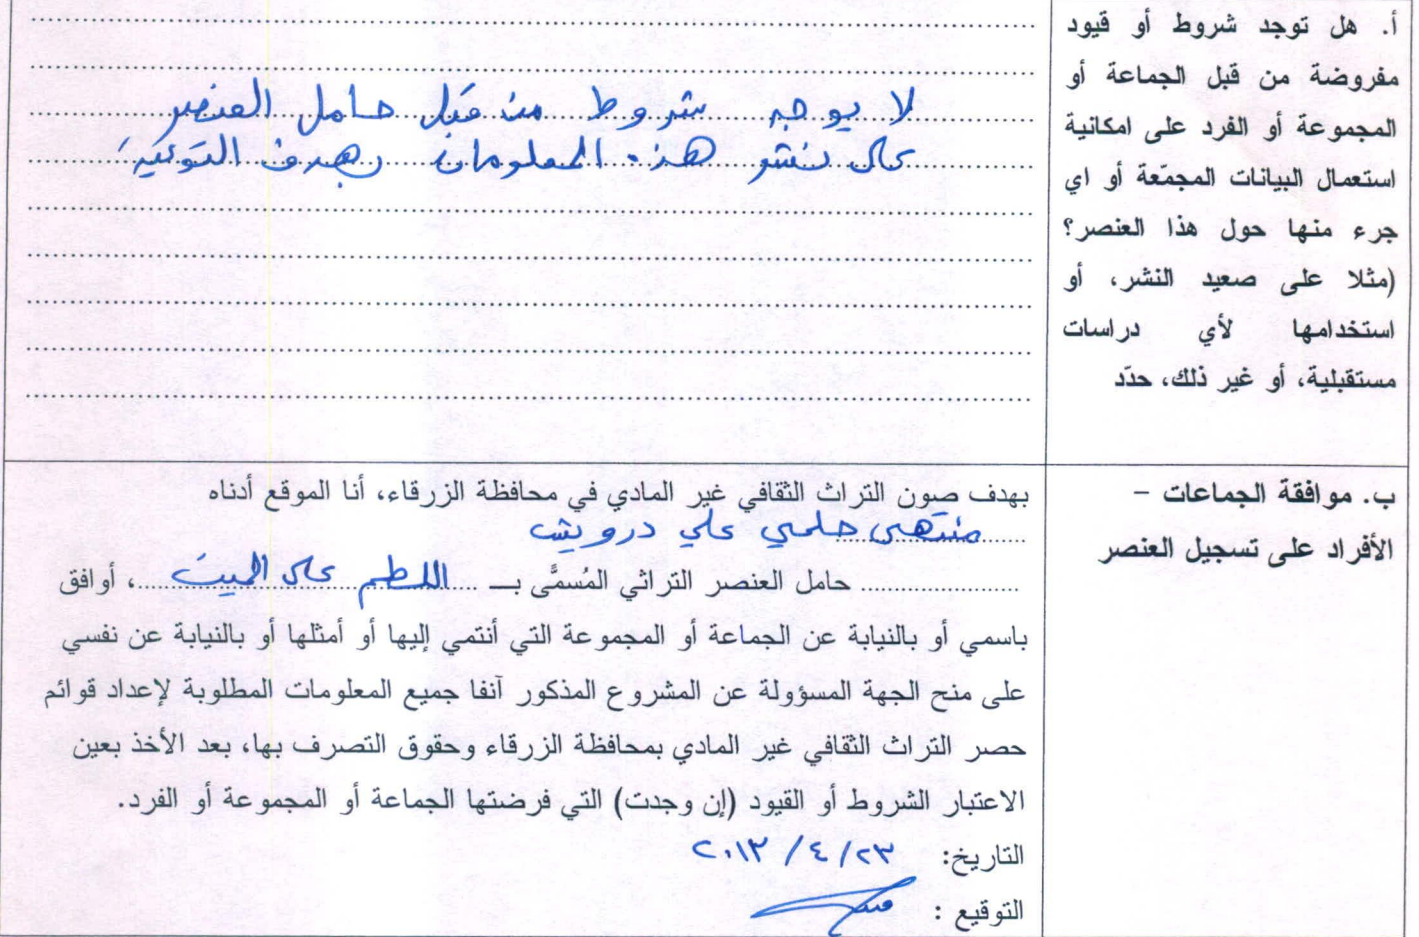 أ. هل توجد شروط أو قيود
مفروضة من قبل الجماعة أو
المجموعة أو الفرد على امكانية
استعمال البيانات المجمّعة أو اي
جرء منها حول هذا العنصر؟
(مثلا على صعيد النشر، أو
استخدامها لأي دراسات
مستقبلية، أو غير ذلك، حدّد
لا يوجد شروط من قبل حامل العنصر
على نشر هذه المعلومات بهدف التوعية
ب. موافقة الجماعات –
الأفراد على تسجيل العنصر
بهدف صون التراث الثقافي غير المادي في محافظة الزرقاء، أنا الموقع أدناه
منتهى حلمي علي درويش
حامل العنصر التراثي المُسمَّى بـ اللطم على الميت، أوافق
باسمي أو بالنيابة عن الجماعة أو المجموعة التي أنتمي إليها أو أمثلها أو بالنيابة عن نفسي
على منح الجهة المسؤولة عن المشروع المذكور آنفا جميع المعلومات المطلوبة لإعداد قوائم
حصر التراث الثقافي غير المادي بمحافظة الزرقاء وحقوق التصرف بها، بعد الأخذ بعين
الاعتبار الشروط أو القيود (إن وجدت) التي فرضتها الجماعة أو المجموعة أو الفرد.
التاريخ: ٢٣/٤/٢٠١٣
التوقيع :